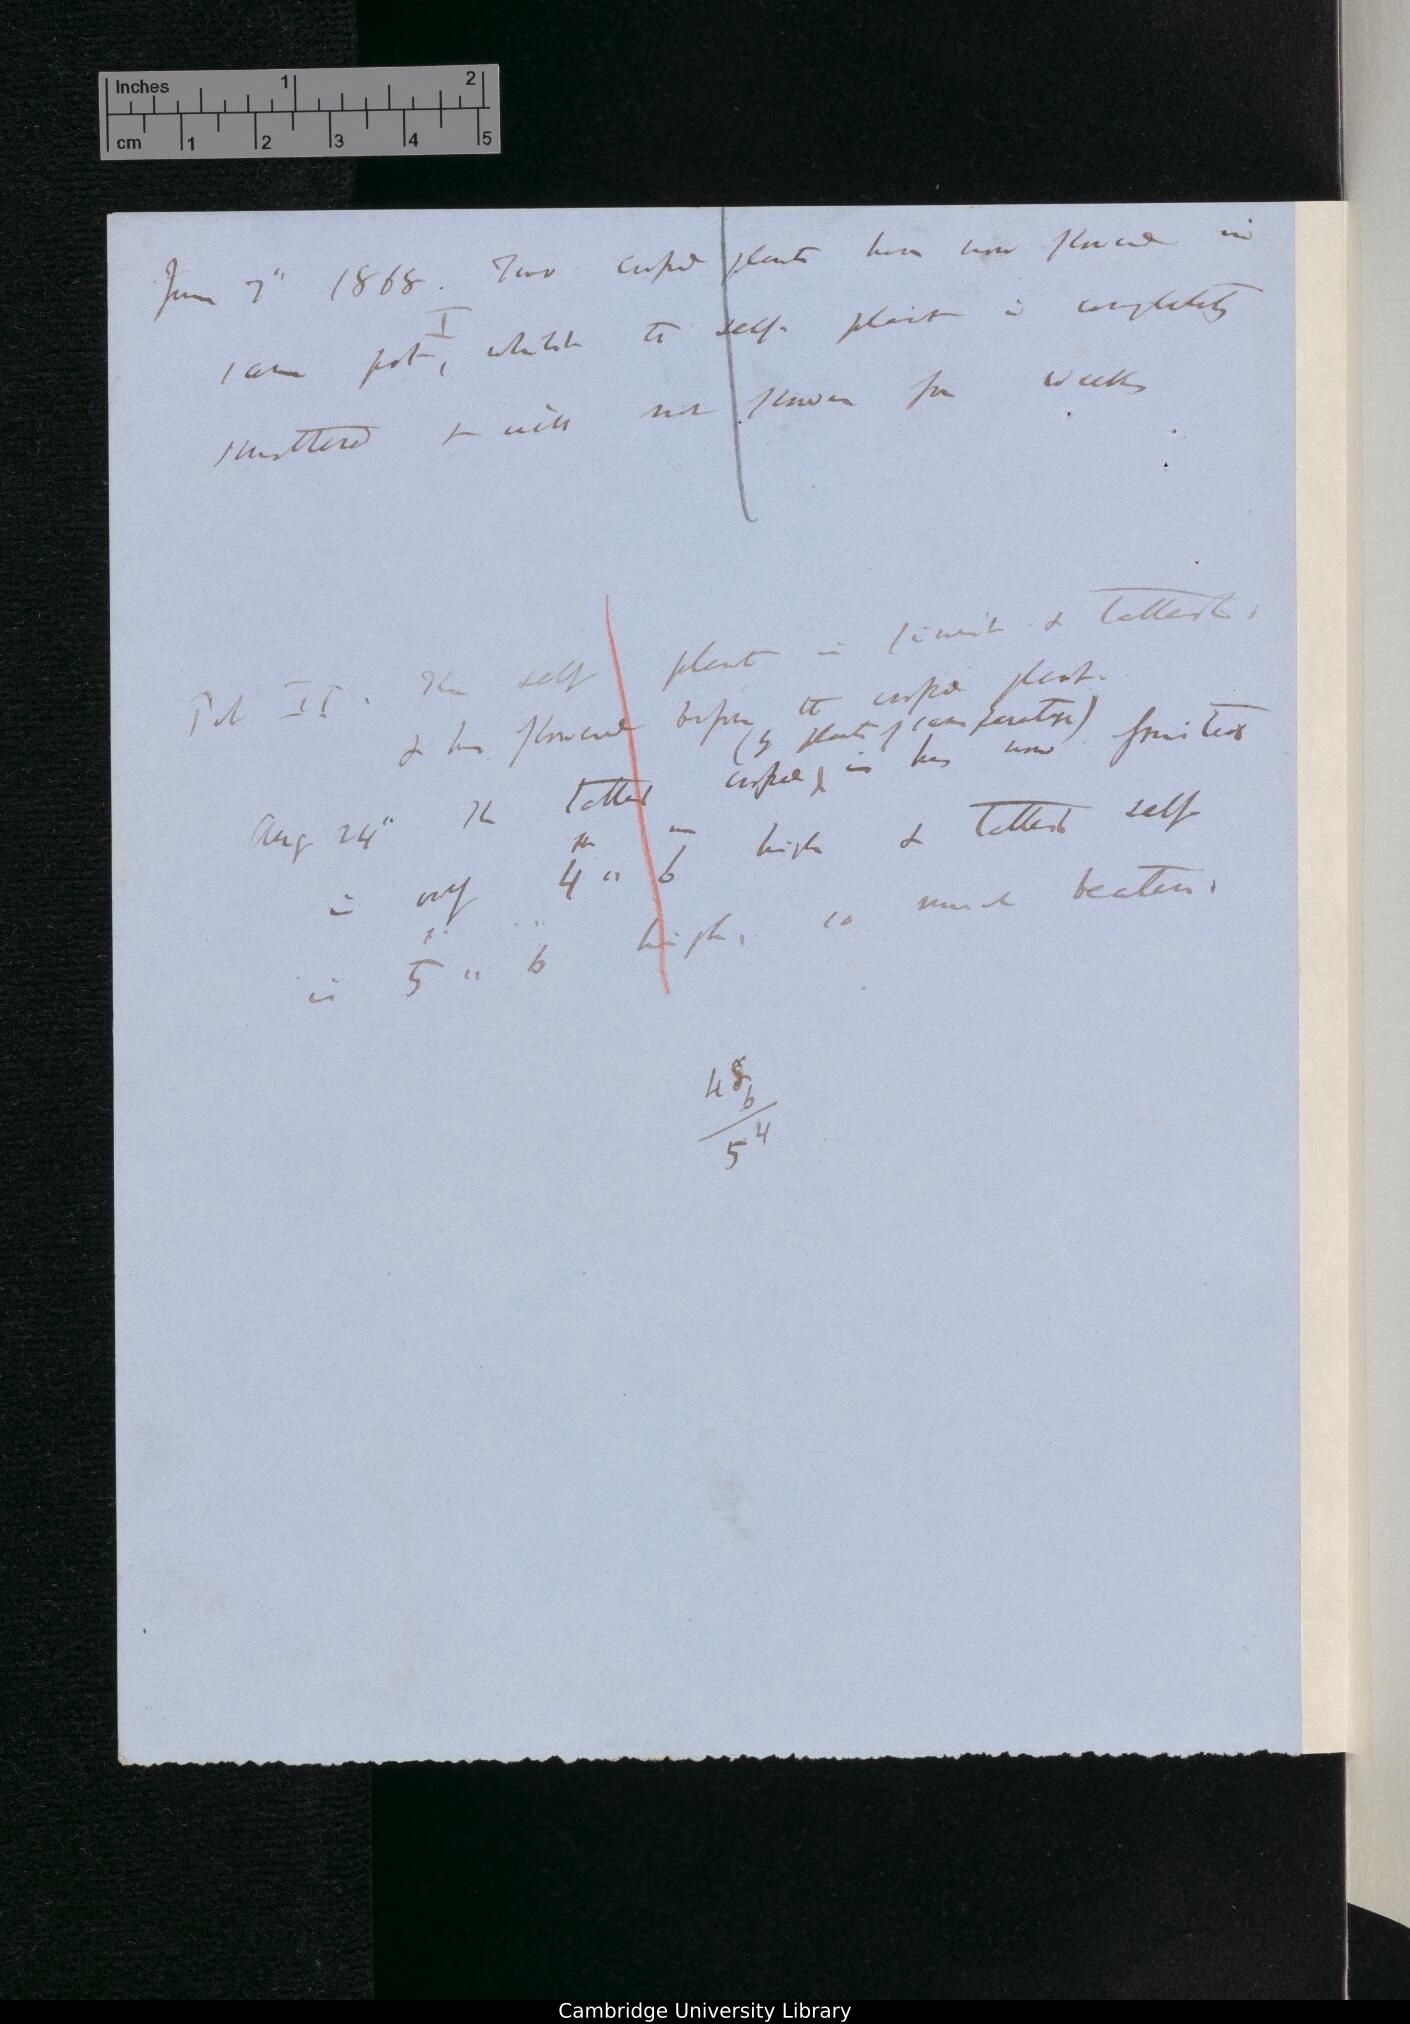 Inches 1 2
cm 1 2 3 4 5
June 7" 1868. Two crossed plants have now flowered in
same pot I, whilst the self- plant is completely
smothered & will not flower for weeks
Pot II. The self plant is finest & tallest,
& has flowered before the crossed plant.
(by plants of same
Aug 24" The tallest crossed, has now fruited
is only 4 " 6 high & tallest self
is 5 " 6 high, so much beaten.
4 8 6
5 4
Cambridge University Library